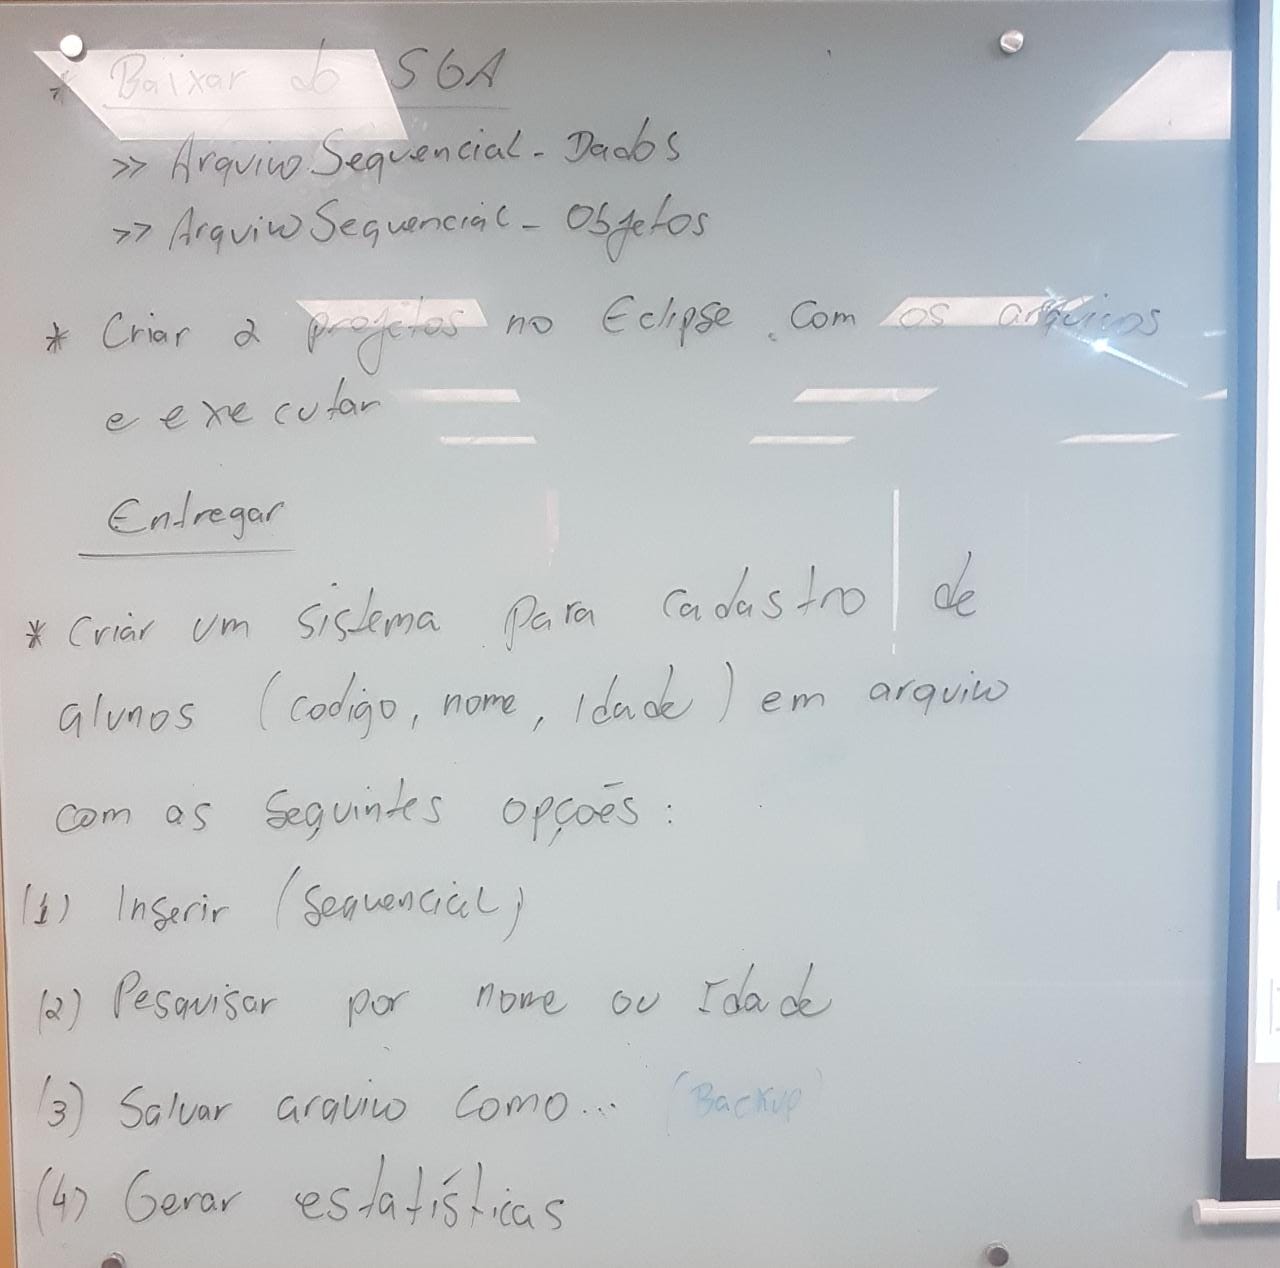 * Baixar do SGA
>> ArquivoSequencial - Dados
>> ArquivoSequencial - Objetos
* Criar 2 projetos no Eclipse com os arquivos
e executar
Entregar
* Criar um sistema para cadastro de
alunos (codigo, nome, Idade) em arquivo
com as seguintes opções:
(1) Inserir (sequencial)
(2) Pesquisar por nome ou Idade
(3) Salvar arquivo como... (Backup)
(4) Gerar estatísticas